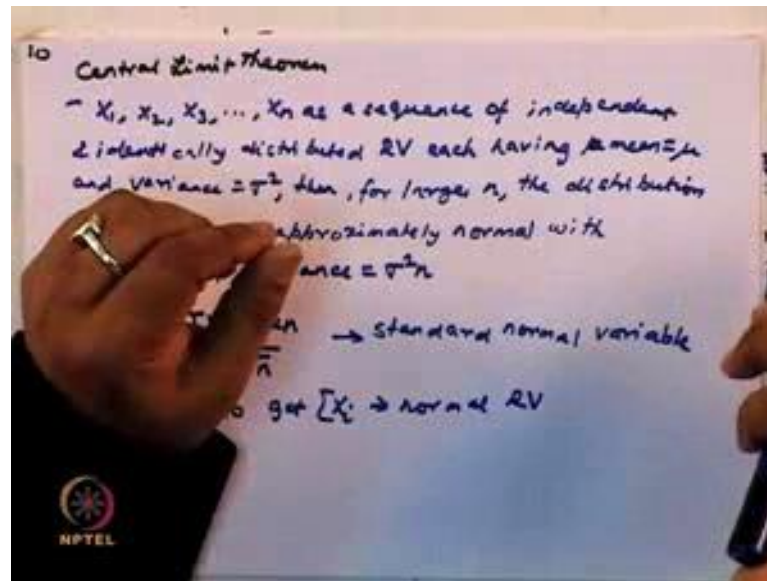 10
Central Limit Theorem
- X₁, X₂, X₃, ..., Xn as a sequence of independent
& identically distributed RV each having mean = μ
and variance = σ², then, for large n, the distribution
approximately normal with
ance = σ²n
→ standard normal variable
get [Xᵢ → normal RV
NPTEL